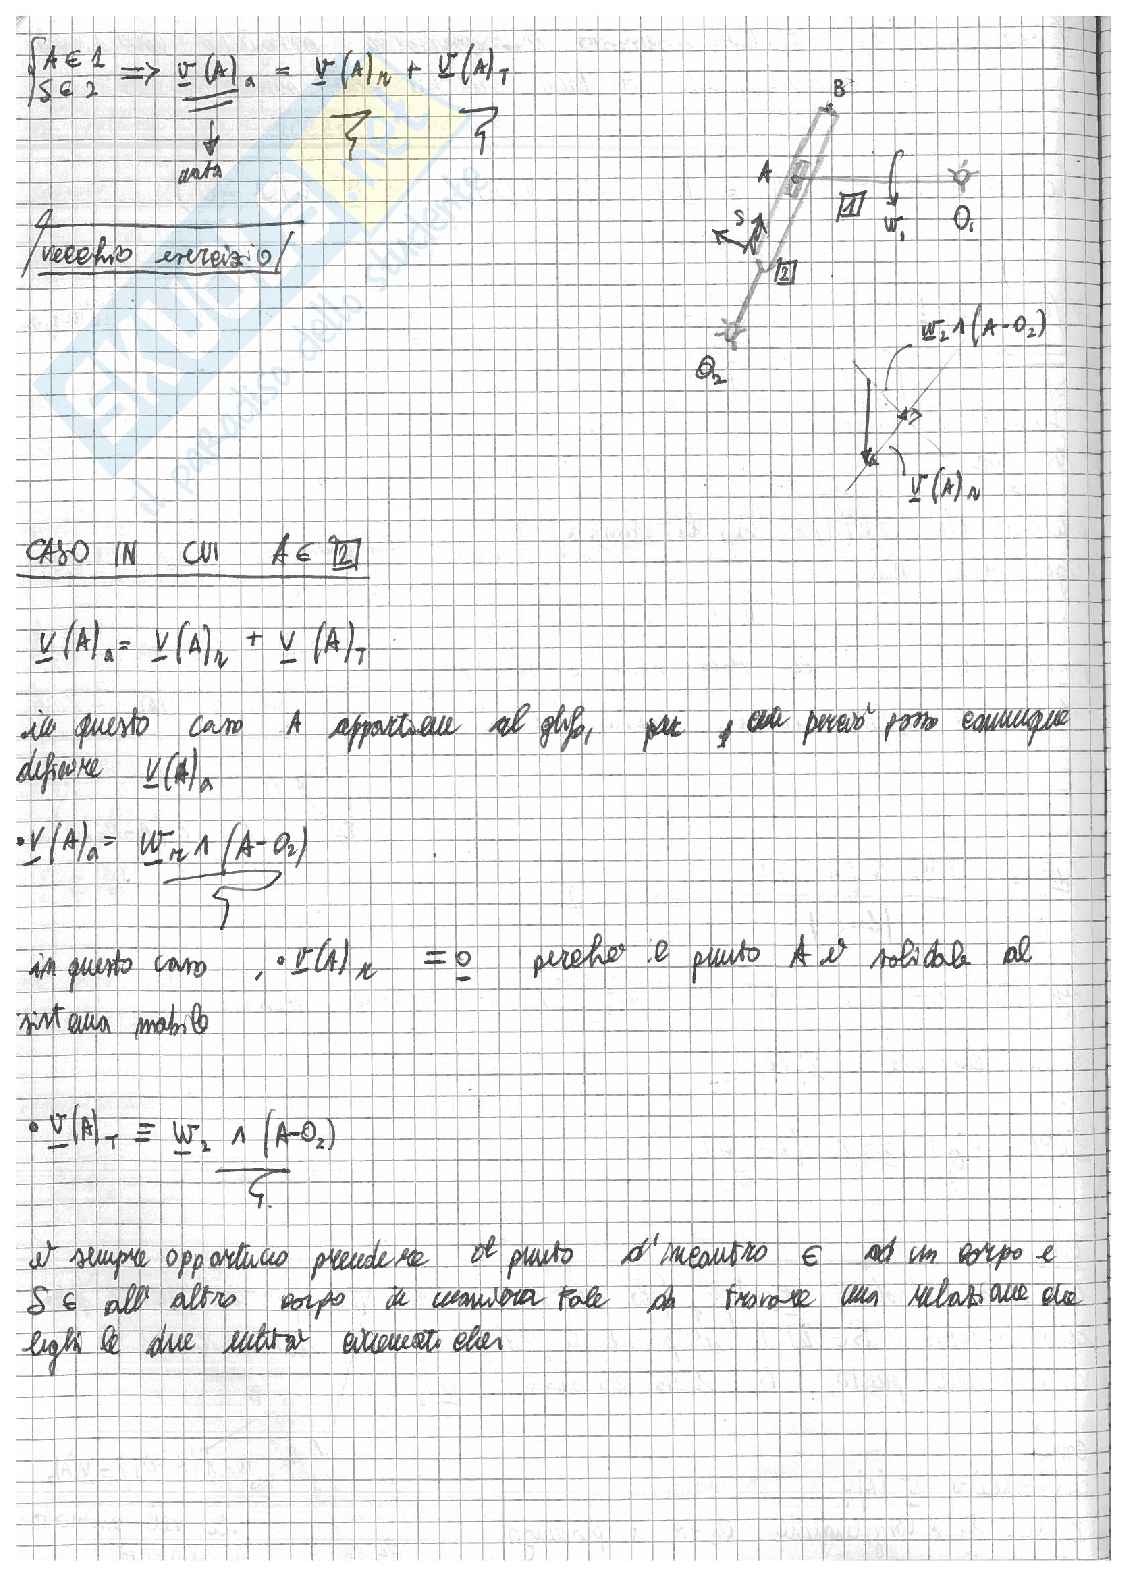 {A ∈ 1
S ∈ 2 => v(A)a = v(A)r + v(A)T
nota
vecchio esercizio
B
A
S
1
w1
O1
2
O2
w2 ∧ (A-O2)
v(A)r
CASO IN CUI A ∈ 2
v(A)a = v(A)r + v(A)T
in questo caso A appartiene al glifo, perciò posso comunque
definire v(A)a
• v(A)a = wr ∧ (A-O2)
in questo caso, • v(A)r = 0 perché il punto A è solidale al
sistema mobile
• v(A)T ≡ w2 ∧ (A-O2)
è sempre opportuno prendere il punto d'incontro ∈ ad un corpo e
S ∈ all'altro corpo in maniera tale da trovare una relazione che
leghi le due entità cinematiche.
SKUOLA.net
il paradiso dello studente